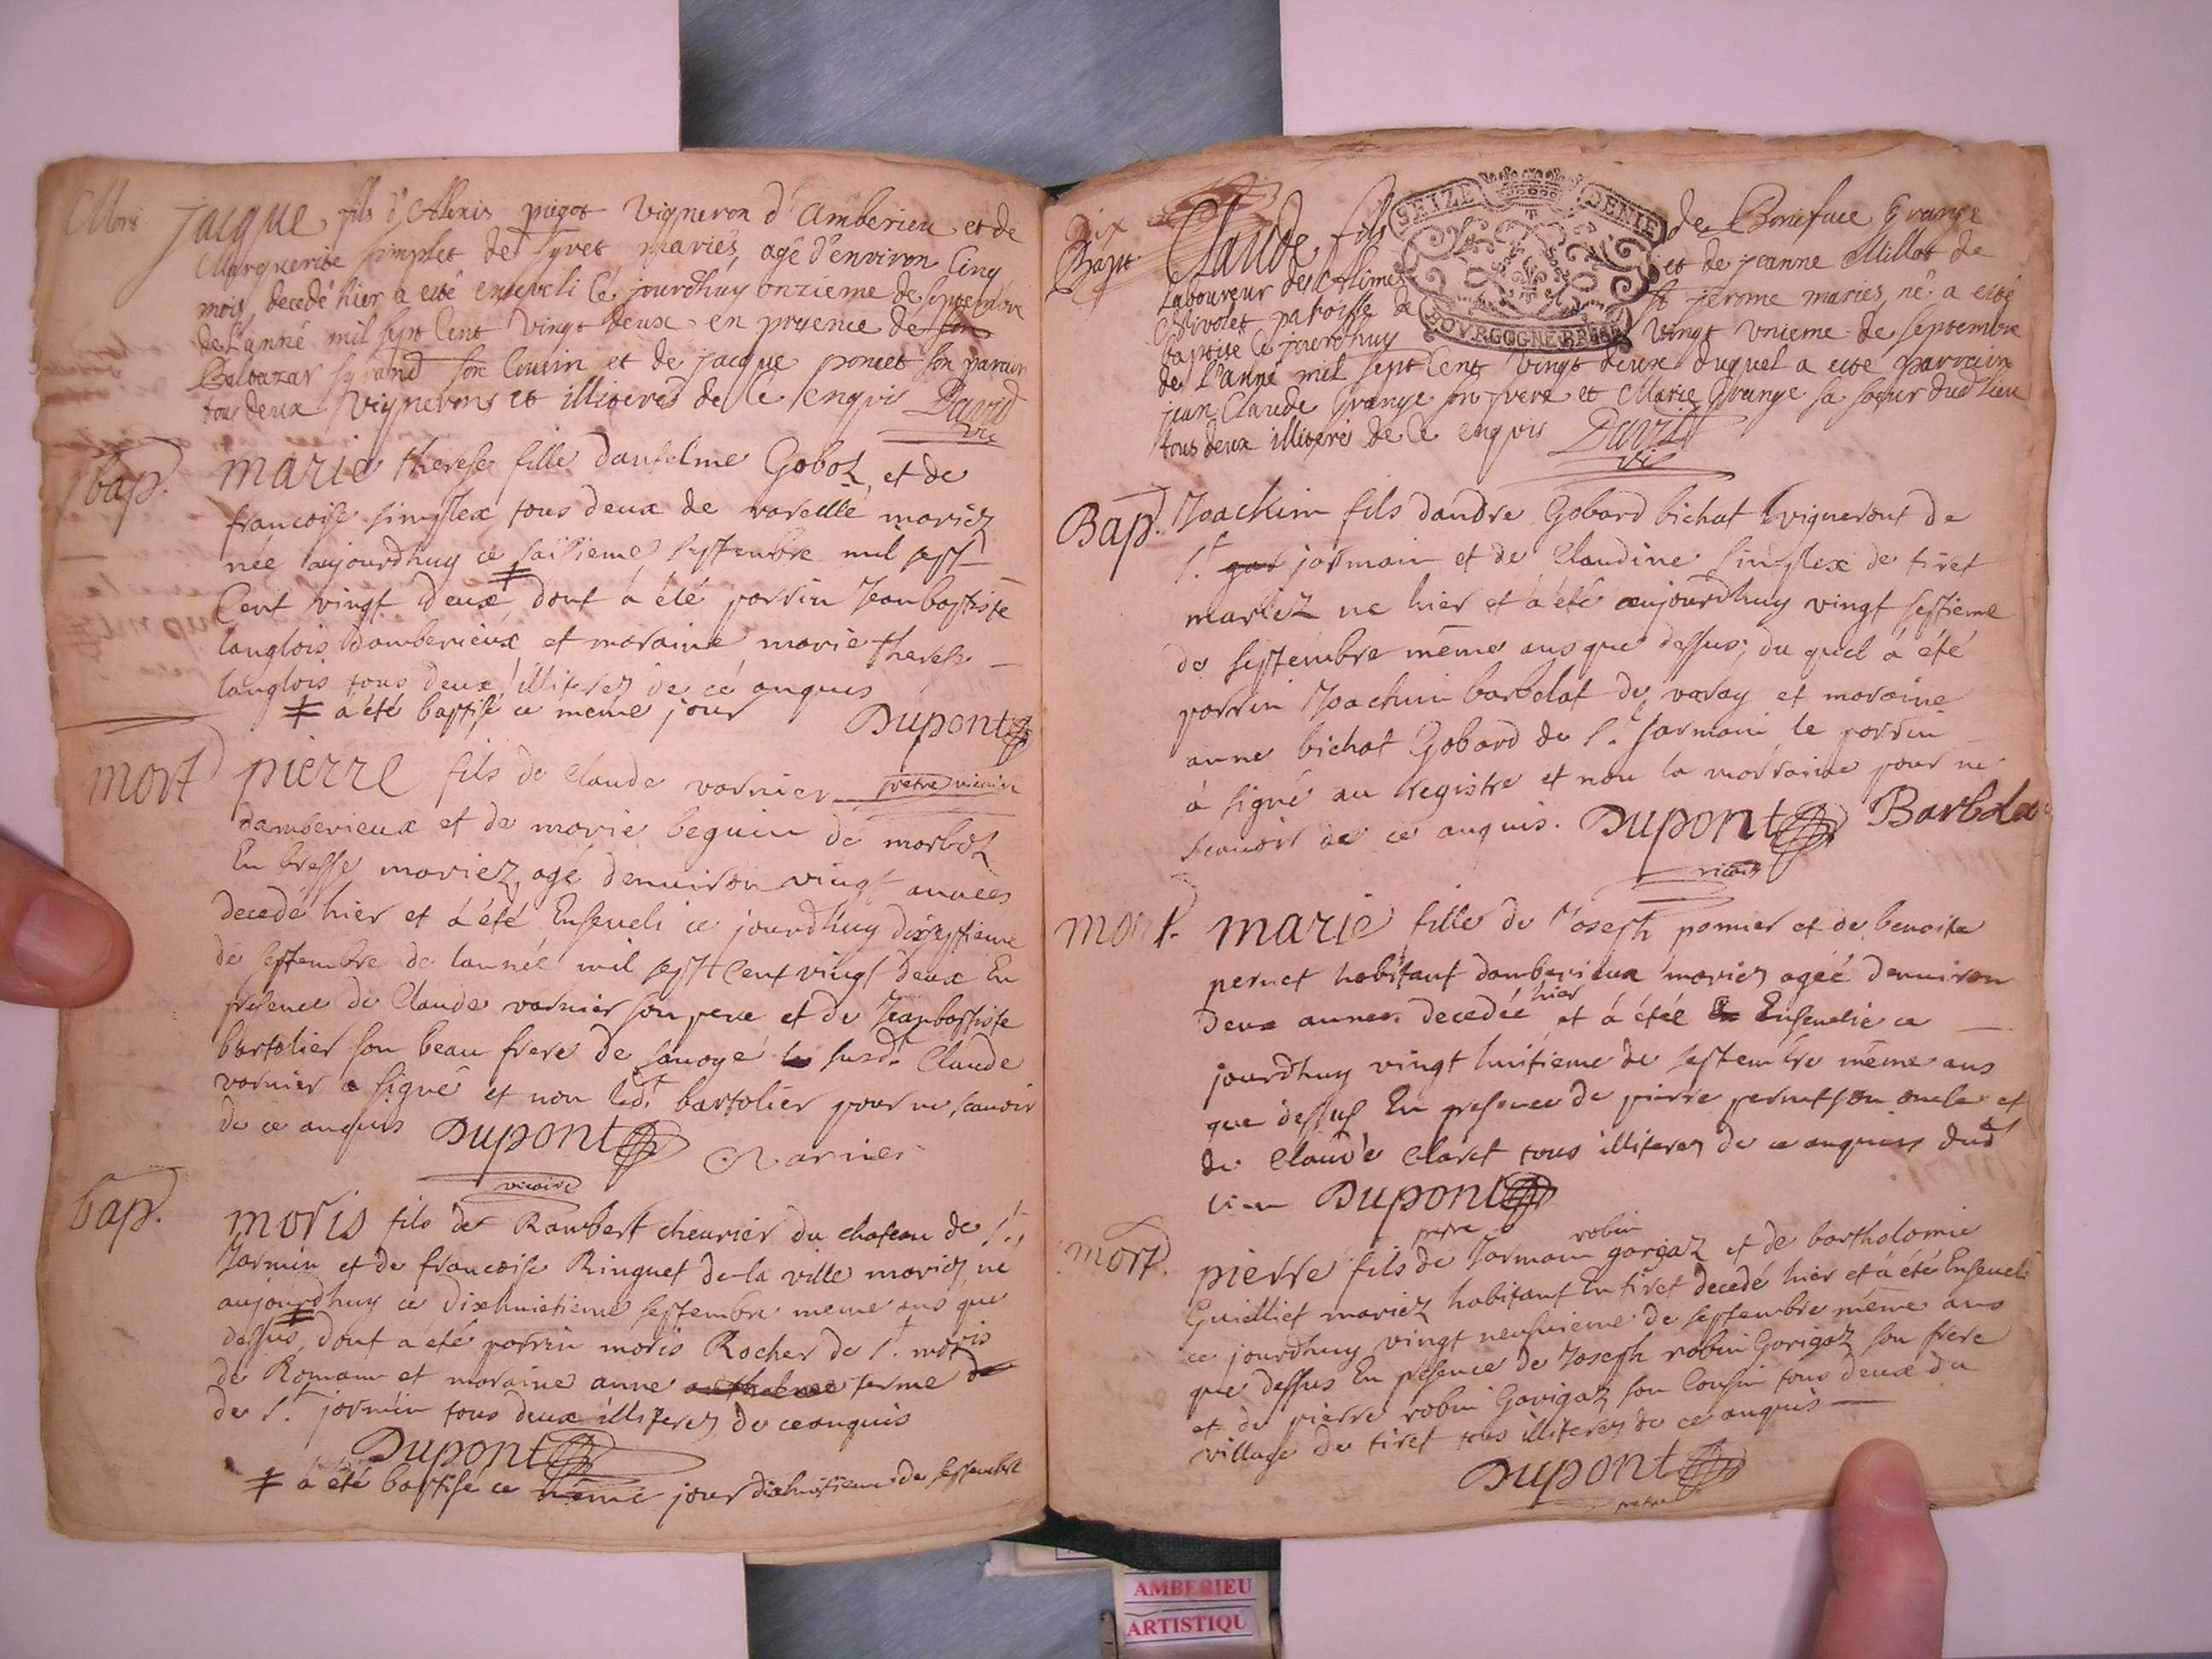 Mort
jacque fils d'Alexis pigot vigneron d'Amberieu et de
Marguerite simplet de Tyret mariés, agé d'environ cinq
mois, decedé hier a esté enseveli ce jourdhuy onzieme de septembre
de L'anné mil sept cent vingt deux en presence de son
Baltazar son cousin et de jacque poncet son parain
tous deux vignerons et illiterés de ce enquis David
vic
bap.
marie therese fille danselme Goboz et de
francoise simplex tous deux de vareille mariez
née aujourdhuy ce saisieme septembre mil sept
Cent vingt deux ‡ dont a été parrin Jean baptiste
langlois damberieux et maraine marie therese
langlois tous deux illiterez de cé anquis
‡ a été baptisé ce meme jour Dupont
pretre vicaire
mort
pierre fils de Claude varnier
damberieux et de marie beguin de marboz
En bresse mariez, agé denuiron vingt années
decedé hier et a été Enseueli ce jourdhuy dixseptieme
de septembre de lannée mil sept Cent vingt deux En
presence de Claude varnier son pere et de Jeanbaptiste
bartolier son beau frere de sauoye le susdt Claude
varnier a signé et non ledt bartolier pour ne scauoir
de ce anquis Dupont Varnier
vicaire
bap.
moris fils de Rambert cheurier du chateau de St
Jarmin et de francoise Ringuet de la ville mariez, né
aujourdhuy ce dixhuictieme septembre meme ans que
dessus, ‡ dont a été parrin moris Rocher de St moris
de Romans et maraine anne ferme de
de St jarmin tous deux illiterez de ce anquis
Dupont
‡ a été baptisé ce meme jour dixhuitieme de septembre
dix
Bapt.
SEIZE DENIE
BOVRGOGNE BRESSE
Claude fils de Boniface Grange
Laboureur des Alimes et de jeanne Millot de
Olivolet paroisse de St jerome mariés, né a esté
baptisé ce jourdhuy vingt vnieme de septembre
de L'anné mil sept cent vingt deux duquel a esté parrain
jean Claude Grange son frere et Marie Grange sa soeur dud lieu
tous deux illiteré de ce enquis David
vic
Bap.
Joackim fils dandre Gobard bichat vigneront de
St gar jarmain et de Claudine simplex de tiret
mariez né hier et a été aujourdhuy vingt septieme
de septembre même ans que dessus; du quel a été
parrin Joachim barbolat de varay et maraine
anne bichat Gobard de St Jarmain le parrin
a signé au registre et non la marraine pour ne
scauoir de ce anquis. Dupont Barbola
vicaire
mort.
marie fille de Joseph pomier et de benoite
pernet habitant damberieux mariez agéé denuiron
deux années decedéé hier et a étéé Enseuelie ce
jourdhuy vingt huitieme de septembre même ans
que dessus En presence de pierre pernet son oncle et
de Claude Claret tous illiterez de ce anquis dud
lieu Dupont
pretre
mort.
pierre fils de Jarmain robin garigaz et de bartholomie
Guilliet mariez habitant En tiret decedé hier et a été Enseueli
ce jourdhuy vingt neufuieme de septembre même ans
que dessus En presence de Joseph robin Gorigoz son frere
et de pierre robin Garigaz son Cousin tous deux du
village de tiret tous illiterez de ce anquis
Dupont
pretre
AMBERIEU
ARTISTIQU